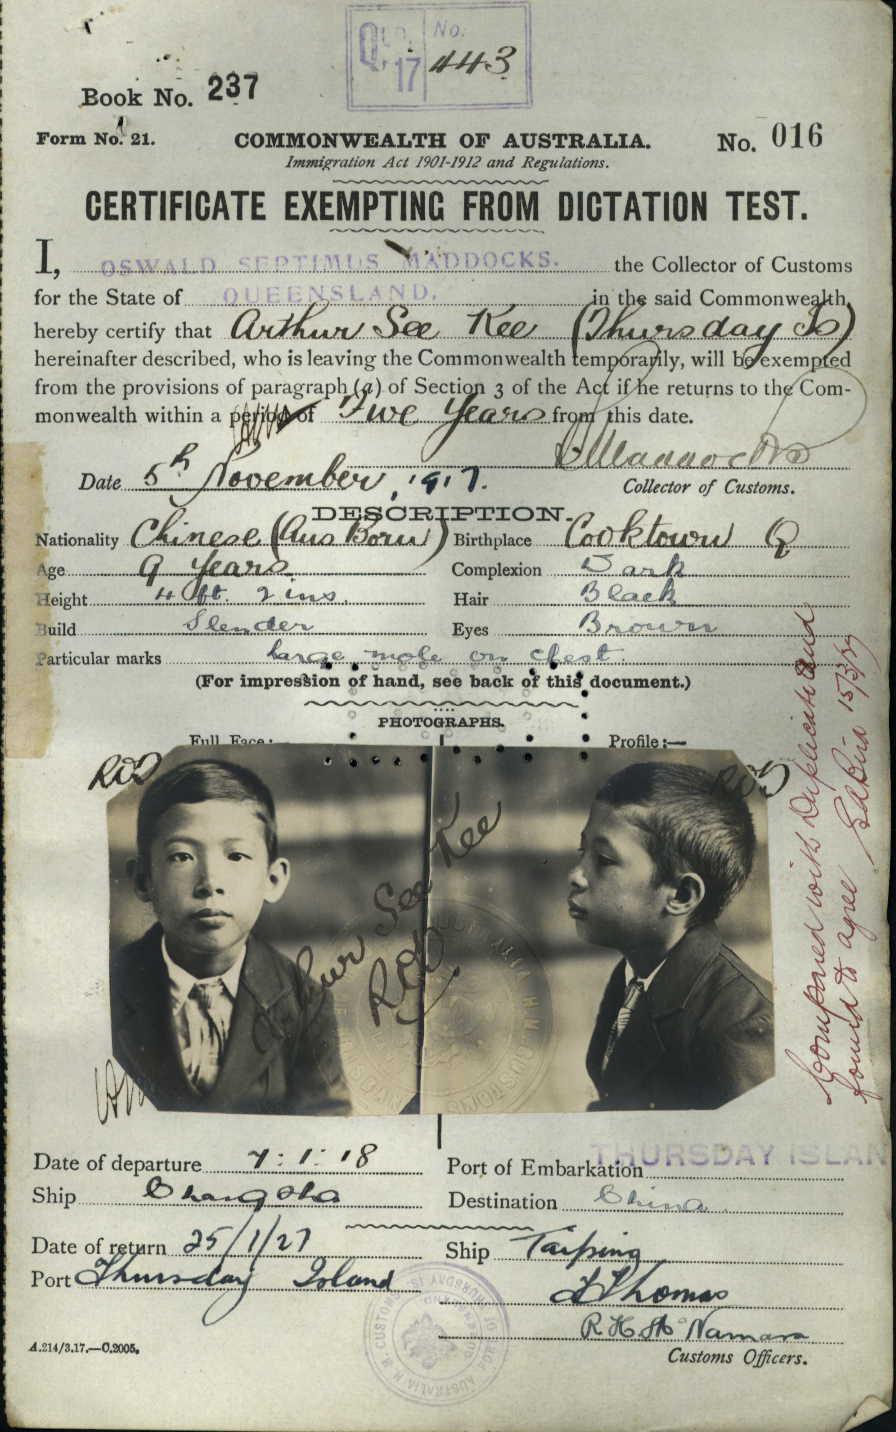 QLD. 17 No. 443
Book No. 237
Form No. 21. COMMONWEALTH OF AUSTRALIA. No. 016
Immigration Act 1901-1912 and Regulations.
CERTIFICATE EXEMPTING FROM DICTATION TEST.
I, OSWALD SEPTIMUS MADDOCKS. the Collector of Customs
for the State of QUEENSLAND. in the said Commonwealth,
hereby certify that Arthur See Kee (Thursday Is)
hereinafter described, who is leaving the Commonwealth temporarily, will be exempted
from the provisions of paragraph (a) of Section 3 of the Act if he returns to the Com-
monwealth within a period of Five Years from this date.
Maddocks
Date 5th November, 1917. Collector of Customs.
DESCRIPTION.
Nationality Chinese (Aus Born) Birthplace Cooktown Q
Age 9 Years Complexion Dark
Height 4 ft. 2 ins. Hair Black
Build Slender Eyes Brown
Particular marks Large mole on chest.
(For impression of hand, see back of this document.)
PHOTOGRAPHS.
Full Face:— Profile:—
Arthur See Kee
Compared with Duplicate and
found to agree 15/3/27
Date of departure 7:1:18 Port of Embarkation THURSDAY ISLAN
Ship Changsha Destination China.
Date of return 25/1/27 Ship Taiping
Port Thursday Island Thomas
R H McNamara
Customs Officers.
A.214/3.17.—C.2005.